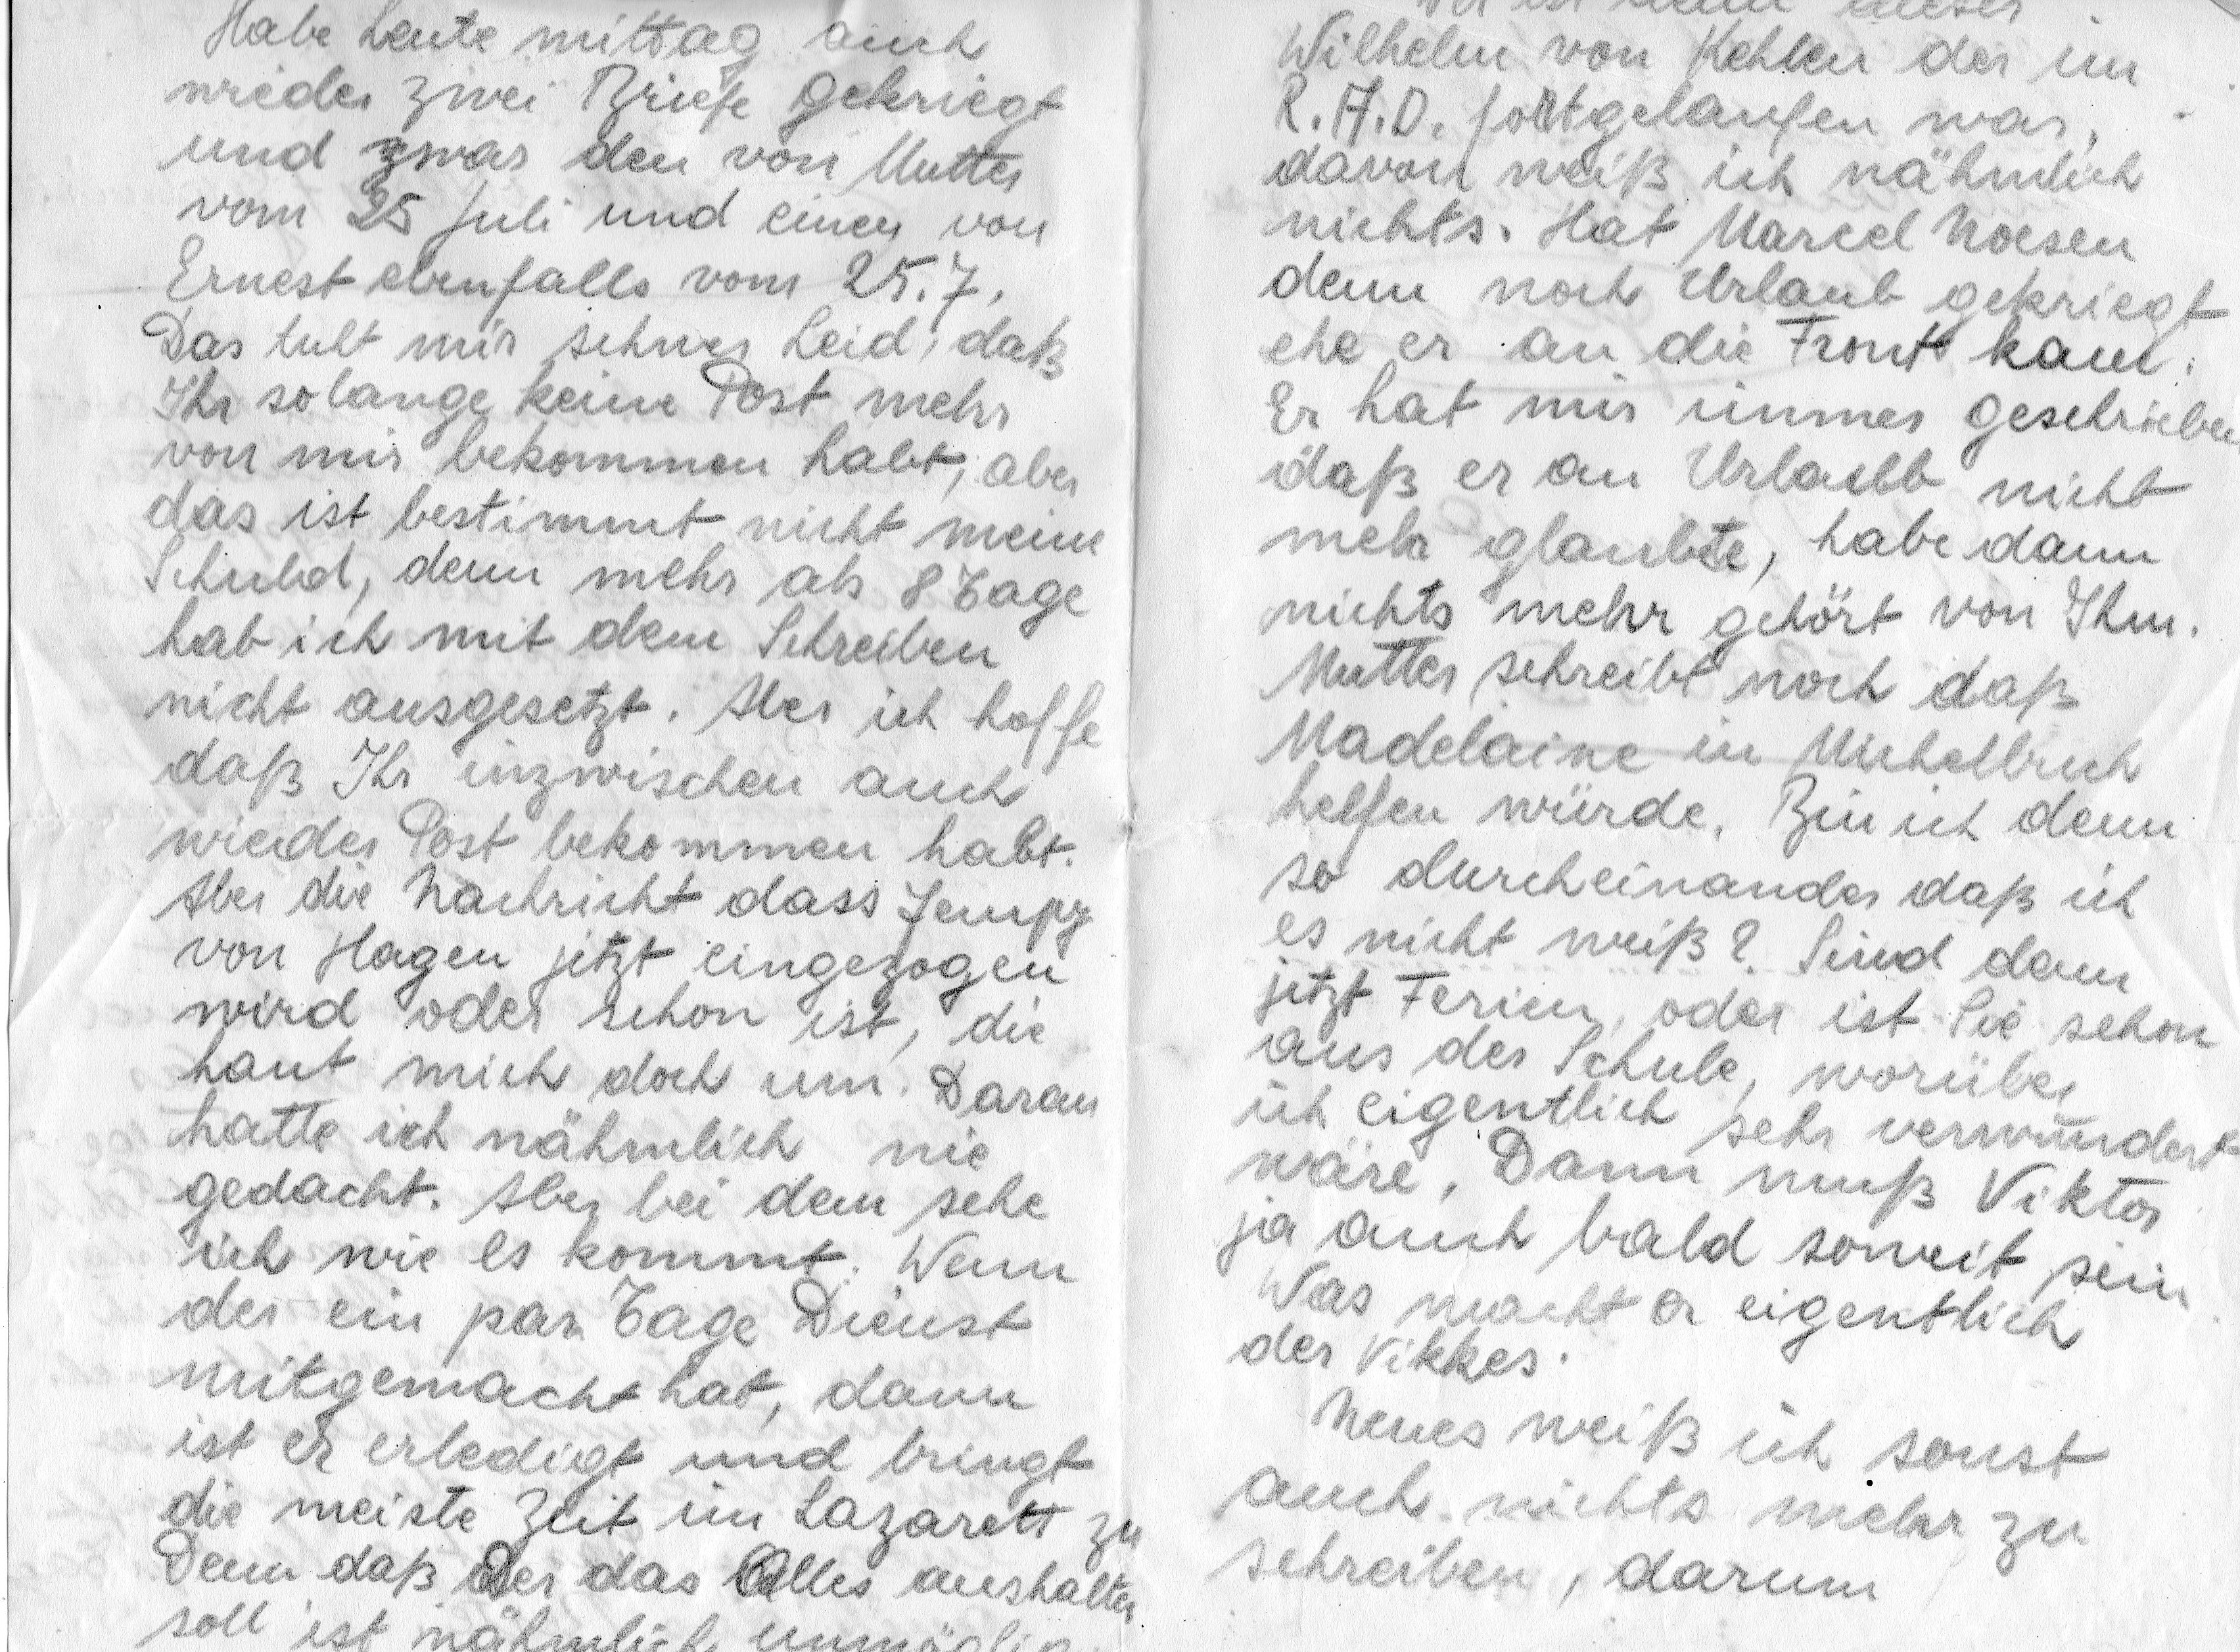 Habe heute mittag auch
wieder zwei Briefe gekriegt
und zwar den von Mutter
vom 25 Juli und einen von
Ernest ebenfalls vom 25.7.
Das tult mir schwer Leid, daß
Ihr solange keine Post mehr
von mir bekommen habt, aber
das ist bestimmt nicht meine
Schuld, denn mehr als 8 Tage
hab ich mit dem Schreiben
nicht ausgesetzt. Aber ich hoffe
daß Ihr inzwischen auch
wieder Post bekommen habt.
Aber die Nachricht dass Jempy
von Hagen jetzt eingezogen
wird oder schon ist, die
haut mich doch um. Daran
hatte ich nähmlich nie
gedacht. Aber bei dem sehe
ich wie es kommt. Wenn
der ein par Tage Dienst
mitgemacht hat, dann
ist er erledigt und bringt
die meiste Zeit im Lazarett zu
Denn daß Der das Alles aushalten
soll ist nähmlich unmöglich
Wer ist denn dieser
Wilhelm von Kehlen der im
R.A.D. fortgelaufen war,
davon weiß ich nähmlich
nichts. Hat Marcel Noesen
denn noch Urlaub gekriegt
ehe er an die Front kam.
Er hat mir immer geschrieben
daß er an Urlaub nicht
mehr glaubte, habe dann
nichts mehr gehört von Ihm.
Mutter schreibt noch daß
Madelaine in Michelbuch
helfen würde. Bin ich denn
so durcheinander daß ich
es nicht weiß? Sind denn
jetzt Ferien, oder ist Sie schon
aus der Schule, worüber
ich eigentlich sehr verwundert
wäre. Dann muß Viktor
ja auch bald soweit sein
Was macht er eigentlich
der Vikkes.
Neues weiß ich sonst
auch nichts mehr zu
schreiben, darum